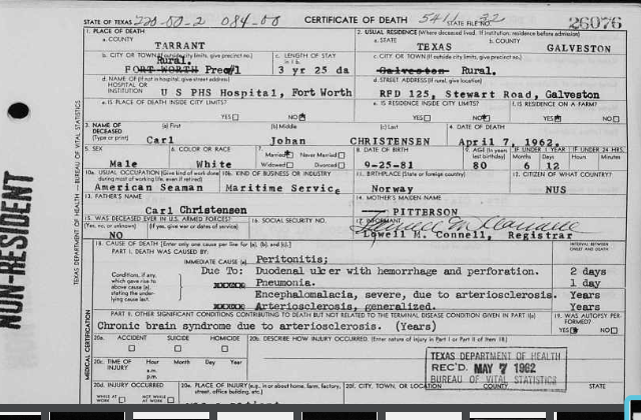 STATE OF TEXAS 220-80-2 084-00 CERTIFICATE OF DEATH STATE FILE NO. 26076
1. PLACE OF DEATH 2. USUAL RESIDENCE (Where deceased lived. If institution: residence before admission)
a. COUNTY a. STATE b. COUNTY
TARRANT TEXAS GALVESTON
b. CITY OR TOWN (If outside city limits, give precinct no.) c. LENGTH OF STAY c. CITY OR TOWN (If outside city limits, give precinct no.)
Rural.
FORT WORTH Pre#1 3 yr 25 da Galveston Rural.
d. NAME OF (If not in hospital, give street address) d. STREET ADDRESS (If rural, give location)
HOSPITAL OR
INSTITUTION U S PHS Hospital, Fort Worth RFD 125, Stewart Road, Galveston
e. IS PLACE OF DEATH INSIDE CITY LIMITS? e. IS RESIDENCE INSIDE CITY LIMITS? f. IS RESIDENCE ON A FARM?
YES NO YES NO YES NO
3. NAME OF DECEASED (a) First (b) Middle (c) Last 4. DATE OF DEATH
Carl Johan CHRISTENSEN April 7, 1962.
5. SEX 6. COLOR OR RACE 7. Married Never Married 8. DATE OF BIRTH 9. AGE (In years last birthday) IF UNDER 1 YEAR IF UNDER 24 HRS.
Widowed Divorced Months Days Hours Minutes
Male White 9-25-81 80 6 12
10a. USUAL OCCUPATION (Give kind of work done during most of working life, even if retired) 10b. KIND OF BUSINESS OR INDUSTRY 11. BIRTHPLACE (State or foreign country) 12. CITIZEN OF WHAT COUNTRY?
American Seaman Maritime Service Norway NUS
13. FATHER'S NAME 14. MOTHER'S MAIDEN NAME
Carl Christensen PITTERSON
15. WAS DECEASED EVER IN U.S. ARMED FORCES? 16. SOCIAL SECURITY NO. 17. INFORMANT
(Yes, no, or unknown) (If yes, give war or dates of service)
NO Lowell M. Connell, Registrar
18. CAUSE OF DEATH [Enter only one cause per line for (a), (b), and (c).] INTERVAL BETWEEN ONSET AND DEATH
PART I. DEATH WAS CAUSED BY:
IMMEDIATE CAUSE (a) Peritonitis;
Conditions, if any, which gave rise to above cause (a), stating the underlying cause last.
Due To: Duodenal ulcer with hemorrhage and perforation. 2 days
Pneumonia. 1 day
Encephalomalacia, severe, due to arteriosclerosis. Years
Arteriosclerosis, generalized. Years
PART II. OTHER SIGNIFICANT CONDITIONS CONTRIBUTING TO DEATH BUT NOT RELATED TO THE TERMINAL DISEASE CONDITION GIVEN IN PART I(a) 19. WAS AUTOPSY PERFORMED?
Chronic brain syndrome due to arteriosclerosis. (Years) YES NO
20a. ACCIDENT SUICIDE HOMICIDE 20b. DESCRIBE HOW INJURY OCCURRED. (Enter nature of injury in Part I or Part II of item 18)
20c. TIME OF INJURY Hour Month Day Year
a.m.
p.m.
TEXAS DEPARTMENT OF HEALTH
REC'D MAY 7 1962
BUREAU OF VITAL STATISTICS
20d. INJURY OCCURRED 20e. PLACE OF INJURY (e.g., in or about home, farm, factory, street, office building, etc.) 20f. CITY, TOWN, OR LOCATION COUNTY STATE
WHILE AT WORK NOT WHILE AT WORK
NON-RESIDENT
TEXAS DEPARTMENT OF HEALTH — BUREAU OF VITAL STATISTICS
MEDICAL CERTIFICATION